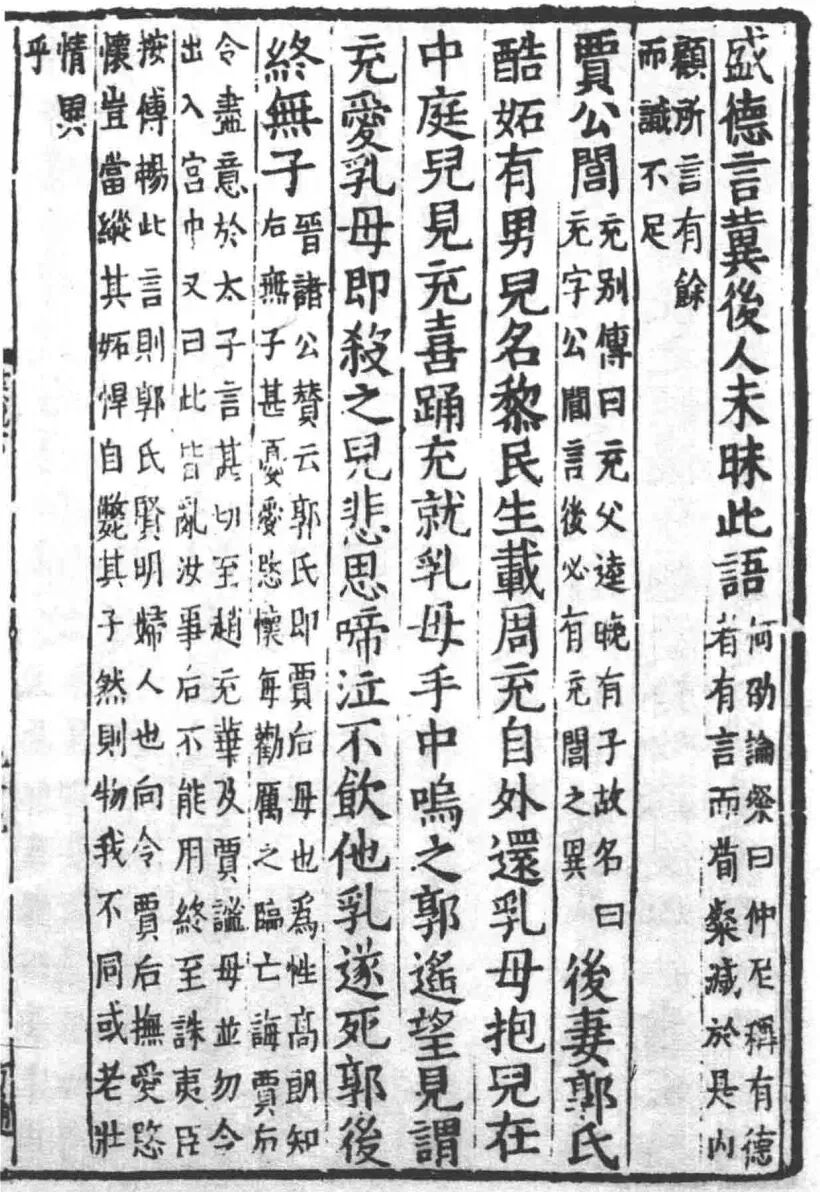 盛德言冀後人未昧此語何劭論粲曰仲尼稱有德者有言而荀粲減於是内
顧所言有餘而識不足
賈公閭充別傳曰充父逵晚有子故名曰充字公閭言後必有充閭之異後妻郭氏
酷妬有男兒名黎民生載周充自外還乳母抱兒在
中庭兒見充喜踊充就乳母手中嗚之郭遙望見謂
充愛乳母即殺之兒悲思啼泣不飲他乳遂死郭後
終無子晉諸公贊云郭氏即賈后母也為性高朗知后無子甚憂愛愍懷每勸厲之臨亡誨賈后
令盡意於太子言其切至趙充華及賈謐母並勿令出入宮中又曰此皆亂汝事后不能用終至誅夷臣
按傅楊此言則郭氏賢明婦人也向令賈后撫愛愍懷豈當縱其妬悍自斃其子然則物我不同或老壯
情異乎